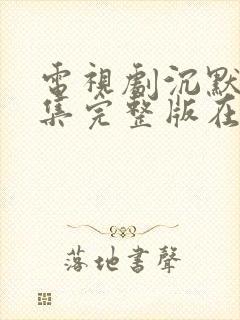 電視劇沉默
集完整版在
落地書聲